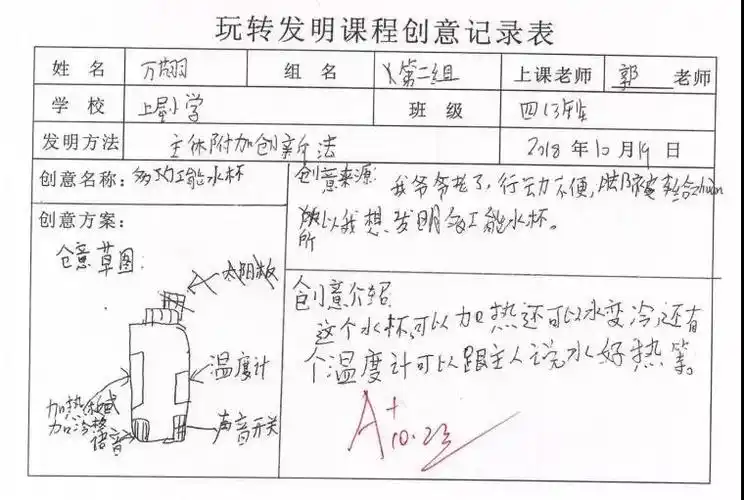 玩转发明课程创意记录表
姓 名 万翊羽 组 名 第二组 上课老师 郭 老师
学 校 上屋小学 班 级
发明方法 主体附加创新法 2018 年 10 月 19 日
创意名称：多功能水杯
创意来源: 我爷爷老了，行云力不便，
所以我想发明多工能水杯。
所
创意方案：
仓意草图：
太阳板
温度计
声音开关
加热
语音
创意介绍
这个水杯可以加热还可以水变冷,还有
个温度计可以跟主人说水好热等。
A+
10.23